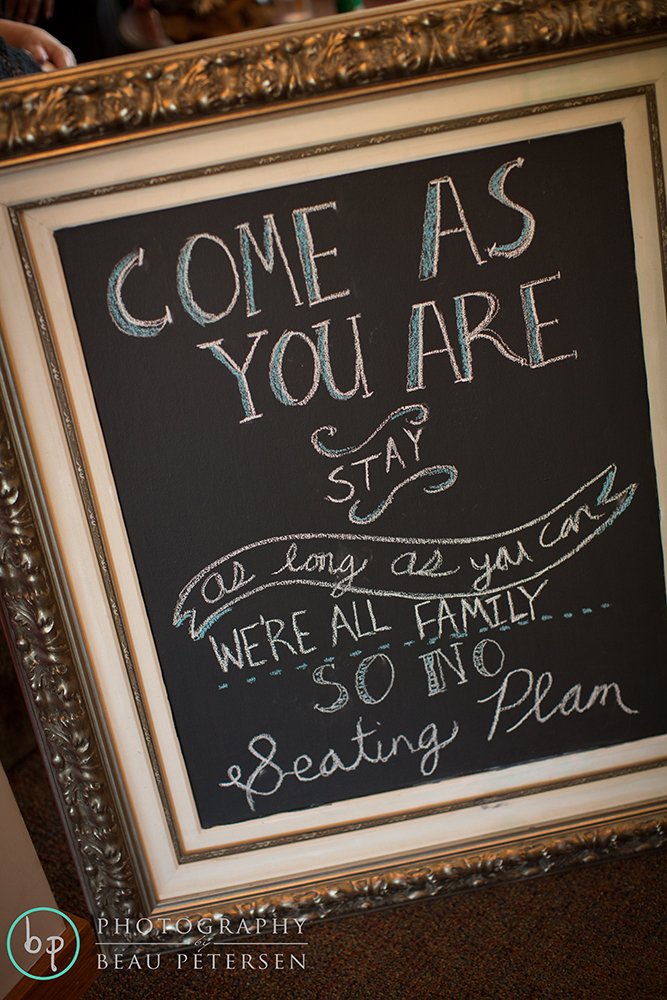 COME AS
YOU ARE
STAY
as long as you can
WE'RE ALL FAMILY
SO NO
Seating Plan
bp
PHOTOGRAPHY
by
BEAU PETERSEN